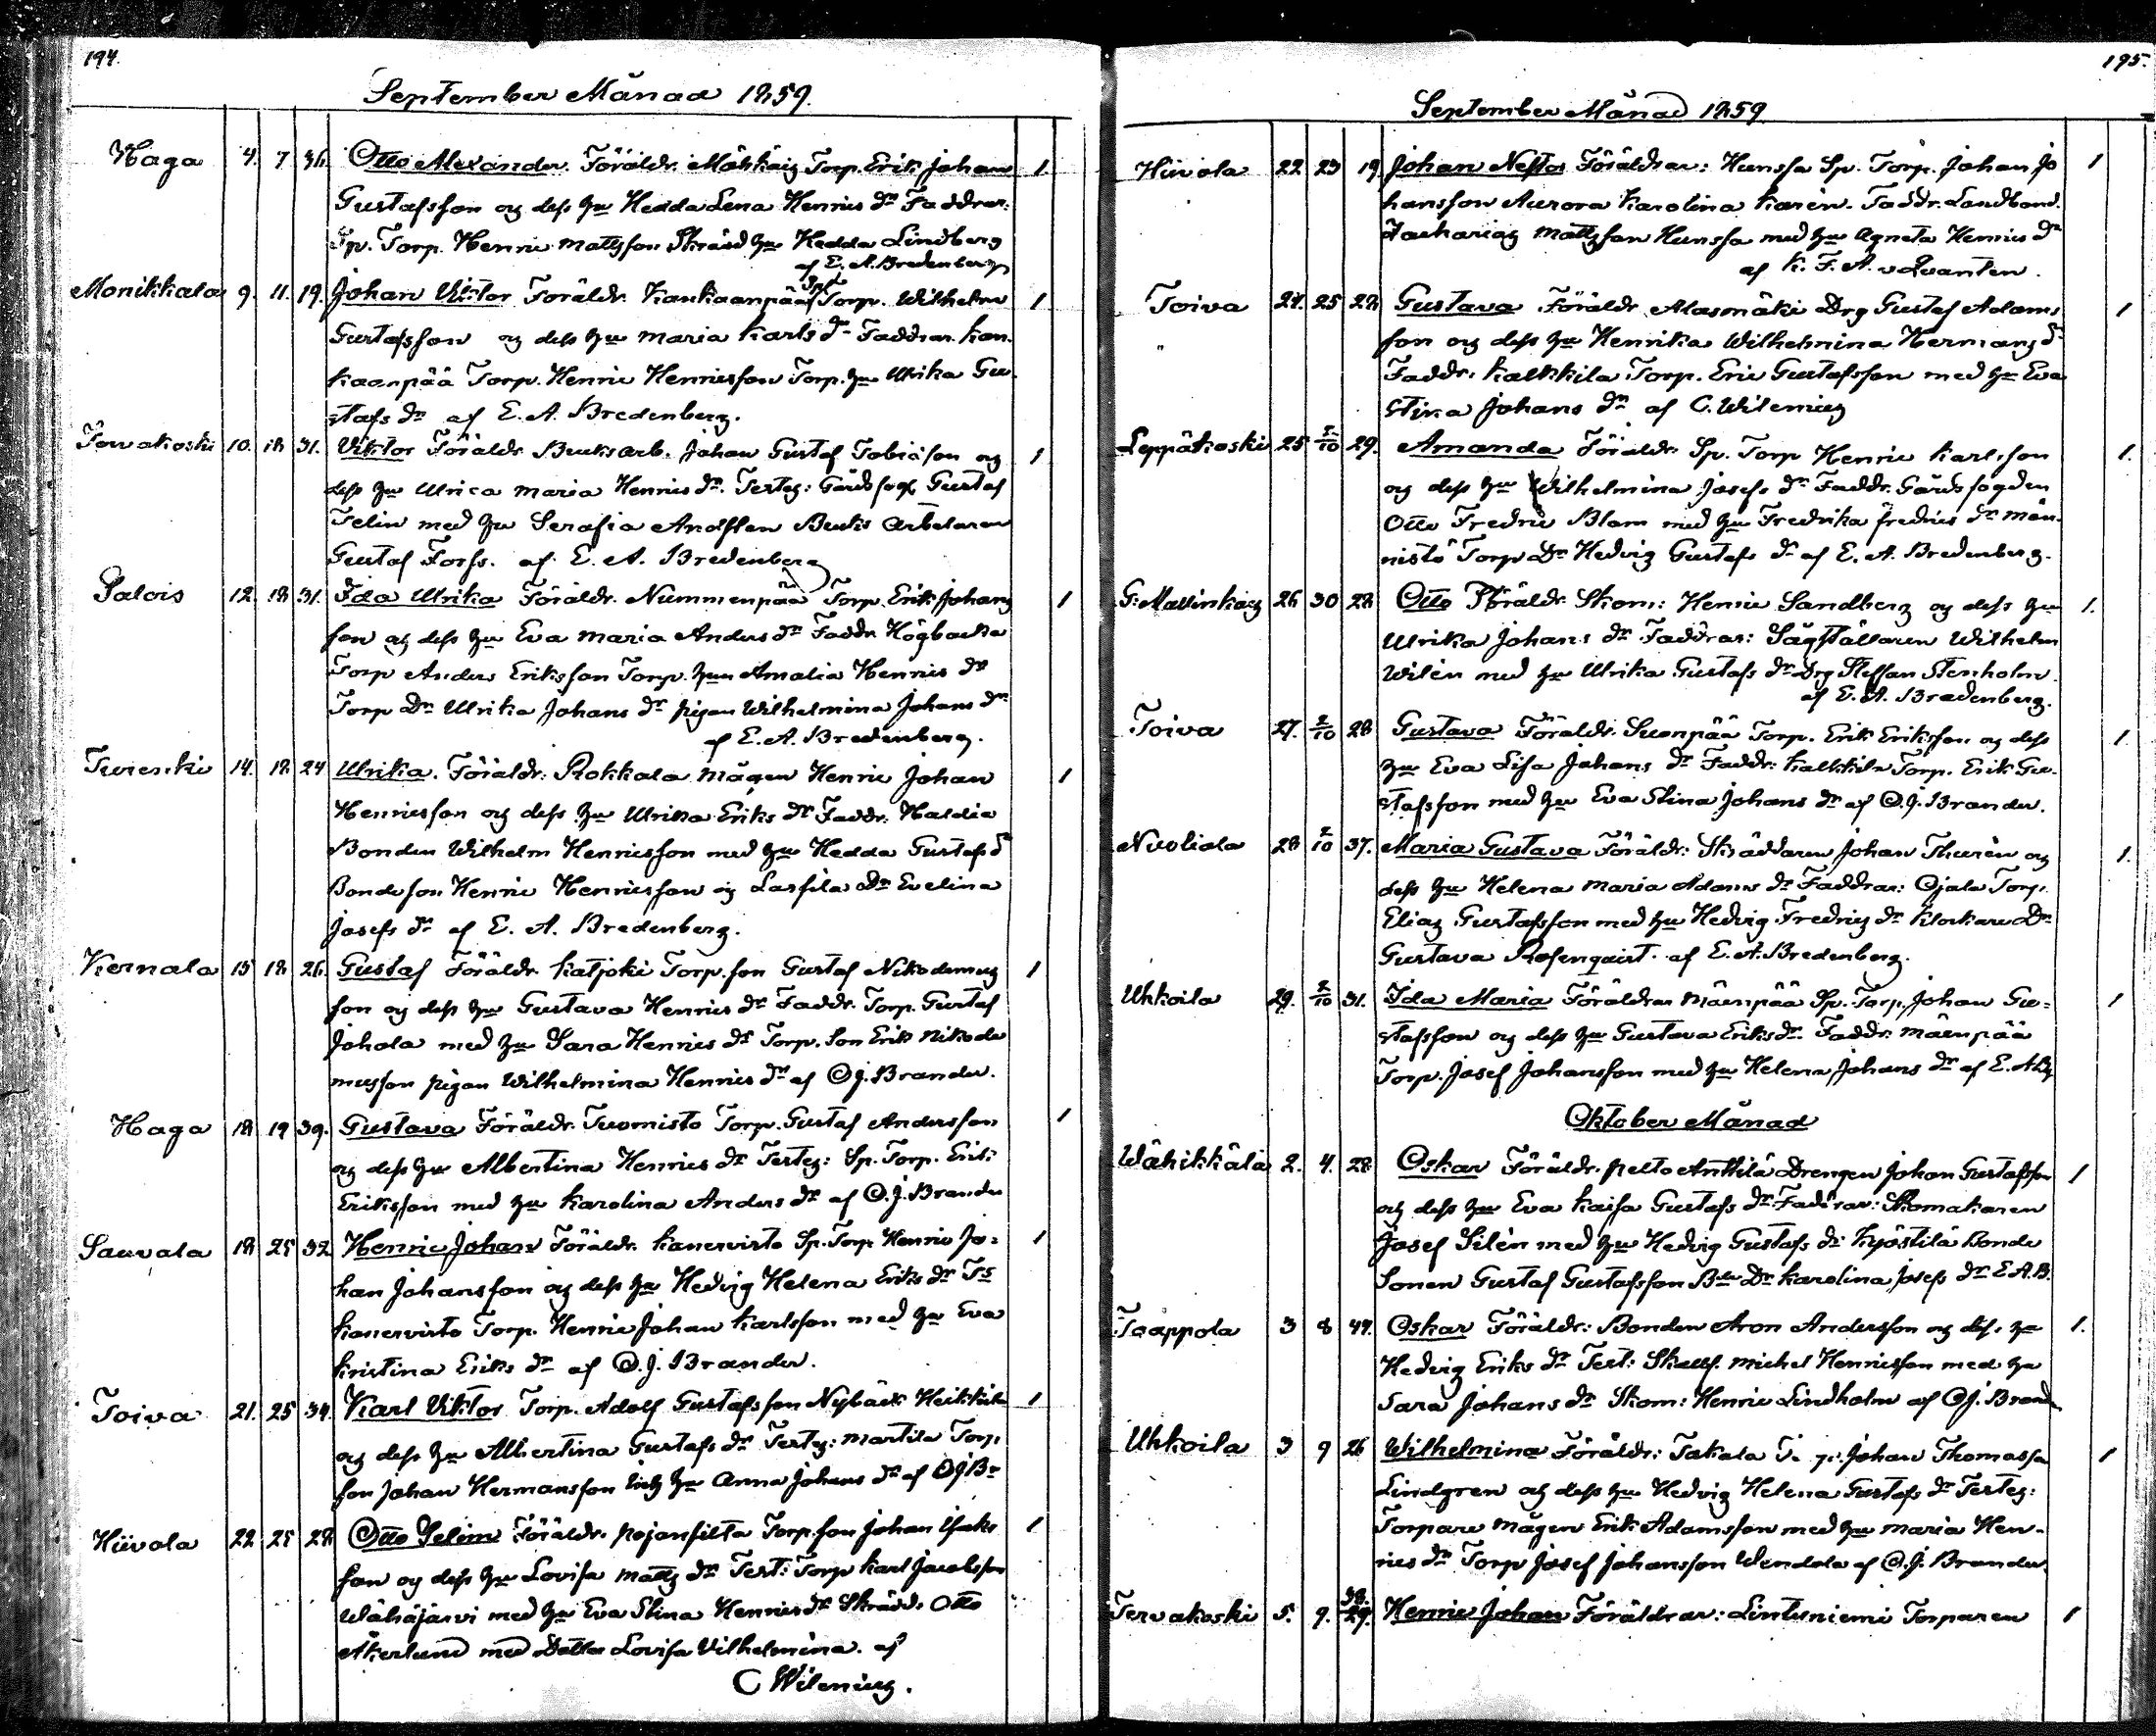 194.
September Månad 1859.
Haga 4. 7 36. Otto Alexander. Föräldr. Torp. Erik Johan 1
Gustafsson og dess hu Hedda Lena Henrics dr Faddrar:
Sp. Torp. Henric Mattsson hu Hedda Lindberg
af E. A. Bredenberg
Monikkala 9. 11. 19. Johan Viktor Föräldr. Kankaanpää Torp. Wilhelm 1
Gustafsson og dess hu Maria Karls dr Faddrar. Kan-
kaanpää Torp. Henric Henricsson Torp. hu Ulrika Gu-
stafs dr af E. A. Bredenberg.
10. 18 31. Viktor Föräldr. Bruksarb. Johan Gustaf Tobiasson og 1
dess hu Ulrica Maria Henrics dr. Testes: Gustaf
Telin med hu Serafia Bruks Arbetaren
Gustaf Forss. af E. A. Bredenberg
Palois 12. 18 31. Ida Ulrika Föräldr. Nummenpää Torp. Erik Johans 1
son og dess hu Eva Maria Anders dr Faddr. Högbacka
Torp Anders Eriksson Torp. hun Amalia Henrics dr
Torp Dr Ulrika Johans dr pigan Wilhelmina Johans dr
af E. A. Bredenberg.
Turenki 14. 18 24 Ulrika. Föräldr: Rokkala mågen Henric Johan 1
Henricsson og dess hu Ulrika Eriks dr Faddr. Haldia
Bonden Wilhelm Henricsson med hu Hedda Gustafs d
Bondeson Henric Henricsson og Lassila Dr Evelina
Josefs dr af E. A. Bredenberg.
Kernala 15 18 26. Gustaf Föräldr. Katjoki Torp. son Gustaf Nikodemus 1
son og dess hu Gustava Henrics dr Faddr. Torp. Gustaf
Johola med hu Sara Henrics dr Torp. Son Erik Nikode
musson pigan Wilhelmina Henrics dr af O. J. Brander.
Haga 18 19 39. Gustava Föräldr. Tuomisto Torp. Gustaf Andersson 1
og dess hu Albertina Henrics dr Testes: Sp. Torp. Erik
Eriksson med hu Karolina Anders dr af O. J. Brander
Sauvala 18 25 32 Henric Johan Föräldr. Kanervisto Sp. Torp Henric Jo=
han Johansson og dess hu Hedvig Helena Eriks dr Ts 1
Kanervisto Torp. Henric Johan Karlsson med hu Eva
Kristina Eriks dr af O. J. Brander.
Toiva 21. 25 34. Karl Viktor Torp. Adolf Gustafsson Nybäck Heikkilä 1
og dess hu Albertina Gustafs dr Testes: Martila Torp.
son Johan Hermansson hu Anna Johans dr af O J Br
Hiivola 22 25 28 Otto Selim Föräldr. Pojansilta Torp. son Johan 1
son og dess hu Lovisa Matts dr Test: Torp Karl Jacobsson
Wähäjärvi med hu Eva Stina Henrics dr Skrädd. Otto
Åkerlund med Dotter Lovisa Vilhelmina. af
C Wilenius.
195.
September Månad 1859
Hiivola 22 23 19. Johan Nestor Föräldrar: Hunssa Sp. Torp. Johan Jo 1
hansson Aurora Karolina Karen. Faddr. Landbond.
Zacharias Mattsson Hunssa med hu Agneta Henrics dr
af K. F. A. v Qvanten.
Toiva 24. 25 28 Gustava Föräldr Alasmäki Drg Gustaf Adams 1
son og dess hu Henrika Wilhelmina Hermans d
Faddr. Kalkkila Torp. Eric Gustafsson med hu Eva
Stina Johans dr af C. Wilenius
Leppäkoski 25 2/10 29. Amanda Föräldr. Sp. Torp Henric Karlsson 1.
og dess hu Wilhelmina Josefs dr Faddr. Gårdsfogden
Otto Fredric Blom med hu Fredrika Fredrics dr Män-
nistö Torp Dr Hedvig Gustafs dr af E. A. Bredenberg.
26 30 28 Otto Föräldr. Skom: Henric Sandberg og dess hu 1.
Ulrika Johans dr Faddrar: Sågställaren Wilhelm
Wilén med hu Ulrika Gustafs dr Drg Steffan Stenholm.
af E. A. Bredenberg.
Toiva 27. 2/10 28 Gustava Föräldr. Suonpää Torp. Erik Eriksson og dess 1.
hu Eva Lisa Johans dr Faddr: Kalkkila Torp. Erik Gu-
stafsson med hu Eva Stina Johans dr af O. J. Brander.
28 2/10 37. Maria Gustava Föräldr: Skräddaren Johan Thurén og 1.
dess hu Helena Maria Adams dr Faddrar: Ojala Torp.
Elias Gustafsson med hu Hedvig Fredrics dr Klockare Dr
Gustava Rosenqvist. af E. A. Bredenberg.
Uhkoila 29. 2/10 31. Ida Maria Föräldrar Mäenpää Sp. Torp. Johan Gu= 1
stafsson og dess hu Gustava Eriks dr. Faddr. Mäenpää
Torp. Josef Johansson med hu Helena Johans dr af E. A. Bg
Oktober Månad
Wähikkälä 2. 4. 28. Oskar Föräldr. Pelto Anttila Drengen Johan Gustafsson 1
og dess hu Eva Kaisa Gustafs dr Faddrar: Skomakaren
Josef Silén med hu Hedvig Gustafs dr Kyöstilä Bonde
Sonen Gustaf Gustafsson Bde Dr Karolina Josefs dr E A. B.
Tcappola 3 8 44. Oskar Föräldr: Bonden Aron Andersson og dess hu 1.
Hedvig Eriks dr Test: Michel Henricsson med hu
Sara Johans dr Skom: Henric Lindholm af O J. Brand
Uhkoila 3 9 26 Wilhelmina Föräldr: Takala Johan Thomasso 1
Lindgren og dess hu Hedvig Helena Gustafs dr Testes:
Torpare mågen Erik Adamsson med hu Maria Hen-
rics dr Torp Josef Johansson Wendola af O. J. Brander.
Tervakoski 5. 9. 38. 29. Henric Johan Föräldrar: Lintuniemi Torparen 1